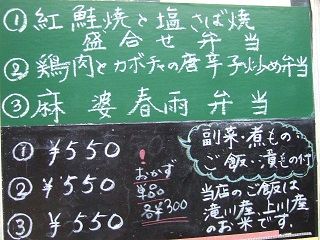 ① 紅鮭焼と塩さば焼
盛合せ弁当
② 鶏肉とカボチャの唐辛子炒め弁当
③ 麻婆春雨弁当
① ¥550
② ¥550
③ ¥550
おかず
¥80
¥300
副菜・煮もの
ご飯・漬もの付
当店のご飯は
滝川産・上川産
のお米です。